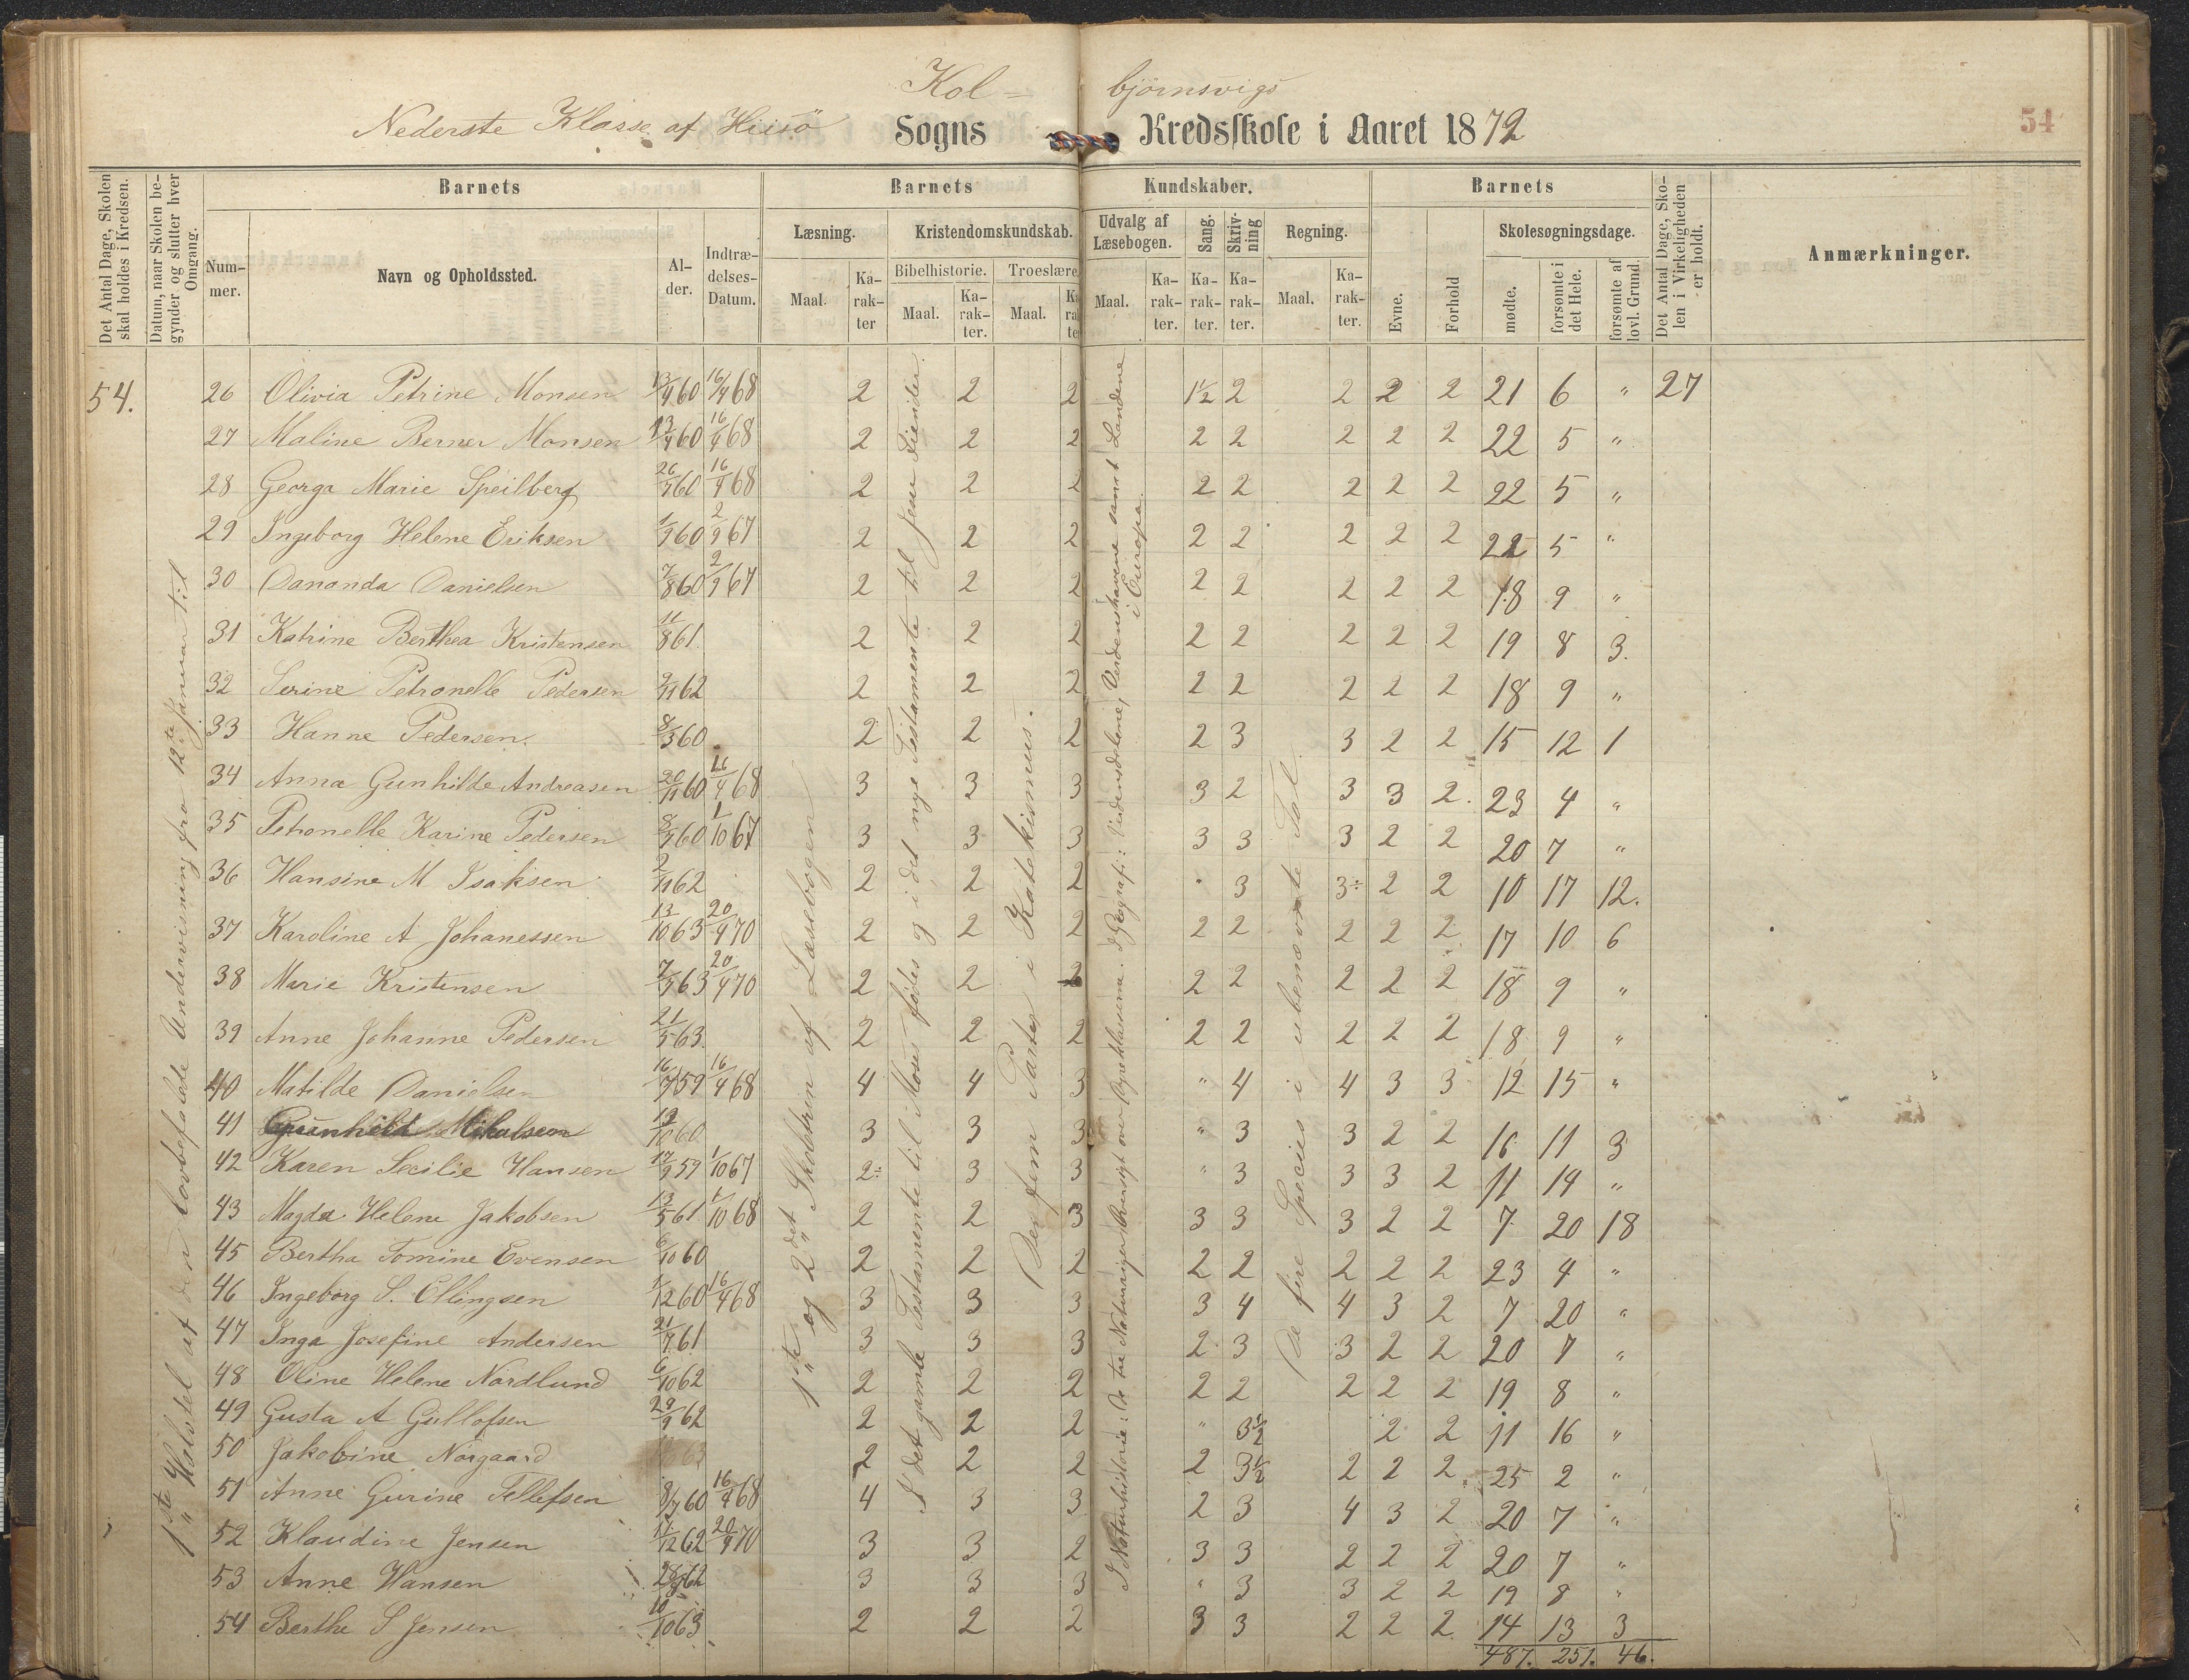 Kol- bjørnsvigs
Nederste Klasse af Hiisø Sogns Kredsskole i Aaret 1872
54
Det Antal Dage, Skolen skal holdes i Kredsen.
Datum, naar Skolen begynder og slutter hver Omgang.
Barnets
Barnets Kundskaber.
Barnets
Det Antal Dage, Skolen i Virkeligheden er holdt.
Anmærkninger.
Nummer.
Navn og Opholdssted.
Alder.
Indtrædelses-Datum.
Læsning.
Kristendomskundskab.
Udvalg af Læsebogen.
Sang.
Skrivning
Regning.
Evne.
Forhold
Skolesøgningsdage.
Maal.
Karakter
Bibelhistorie.
Troeslære.
Maal.
Karakter.
Maal.
Maal.
Karakter.
Karakter.
Karakter.
Maal.
Karakter.
mødte.
forsømte i det Hele.
forsømte af lovl. Grund.
54.
1ste Halvdel af den lovbefalede Undervisning fra 12te Januar til
1ste og 2det Skoletrin af Læsebogen
I det gamle Testamente til Moses fødes og i det nye Testamente til Jesu Fiender.
De fem Parter i Katekismus.
I Naturhistorie: De tre Naturriger, Oversigt over Dyreklasserne. I Geografi: Verdensdelene, Verdenshavene samt Landene i Europa.
De fire Species i ubenævnte Tal.
26 Olivia Petrine Monsen 13/4 60 16/4 68 2 2 2 1½ 2 2 2 2 21 6 " 27
27 Maline Berner Monsen 13/4 60 16/4 68 2 2 2 2 2 2 2 2 22 5 "
28 Georga Marie Speilberg 26/4 60 16/4 68 2 2 2 2 2 2 2 2 22 5 "
29 Ingeborg Helene Eriksen 1/9 60 2/9 67 2 2 2 2 2 2 2 2 22 5 "
30 Dananda Danielsen 7/8 60 2/9 67 2 2 2 2 2 2 2 2 18 9 "
31 Katrine Berthea Kristensen 11/8 61. 2 2 2 2 2 2 2 2 19 8 3.
32 Serine Petronelle Pedersen 2/11 62 2 2 2 2 2 2 2 2 18 9 "
33 Hanne Pedersen. 8/3 60 2 2 2 2 3 3 2 2 15 12 1
34 Anna Gunhilde Andreasen 20/11 60 16/4 68 3 3 3 3 2 3 3 2. 23 4 "
35 Petronelle Karine Pedersen 8/4 60 1/10 67 3 3 3 3 3 3 2 2 20 7 "
36 Hansine M Isaksen 2/11 62 2 2 2 " 3 3÷ 2 2 10 17 12.
37 Karoline A Johanessen 13/10 63 20/4 70 2 2 2 2 2 2 2 2 17 10 6
38 Marie Kristensen 7/4 63 20/4 70 2 2 2 2 2 2 2 2 18 9 "
39 Anne Johanne Pedersen 21/5 63. 2 2 2 2 2 2 2 2 18 9 "
40 Matilde Danielsen 16/7 59 16/4 68 4 4 3 " 4 4 3 3 12 15 "
41 Gunhild Mikalsen 19/10 60 3 3 3 " 3 3 2 2 16 11 3
42 Karen Secilie Hansen 17/9 59 1/10 67 2÷ 3 3 " 3 3 3 2 11 14 "
43 Magda Helene Jakobsen 13/5 61 1/10 68 2 2 3 3 3 3 2 2 7 20 18
45 Bertha Tomine Evensen 6/10 60 2 2 2 2 2 2 2 2 23 4 "
46 Ingeborg S. Ellingsen 1/12 60 16/4 68 3 3 3 3 4 4 3 2 7 20 "
47 Inga Josefine Andersen 21/7 61 3 3 3 2 3 3 2 2 20 7 "
48 Oline Helene Nordlund 6/10 62 2 2 2 2 2 2 2 2 19 8 "
49 Gusta A Gullofsen 29/9 62 2 2 2 " 3½ 2 2 11 16 "
50 Jakobine Norgaard 63 2 2 2 2 3½ 2 2 2 25 2 "
51 Anne Gurine Tellefsen 8/7 60 16/4 68 4 3 3 2 3 4 3 2 20 7 "
52 Klaudine Jensen 11/12 62 20/4 70 3 3 2 3 3 2 2 2 20 7 "
53 Anne Hansen 62 3 3 3 " 3 3 2 2 19 8 "
54 Berthe S Jensen 10/10 63 2 2 2 3 3 2 2 2 14 13 3
487. 251. 46.